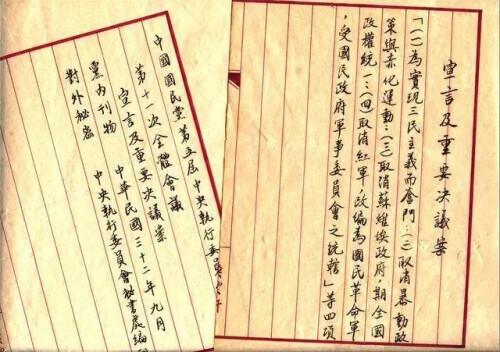 宣言及重要决議案
「(一)為實現三民主義而奮鬥:(二)取消暴動政
策與赤化運動:(三)取消蘇維埃政府,期全國
政權統一:(四)取消紅軍,改編為國民革命軍
,受國民政府軍事委員會之統轄」等四項
中國國民黨第五屆中央執行委
第十一次全體會議
宣言及重要决議案
黨内刊物 中華民國三十二年九月
對外秘密 中央執行委員會秘書處編